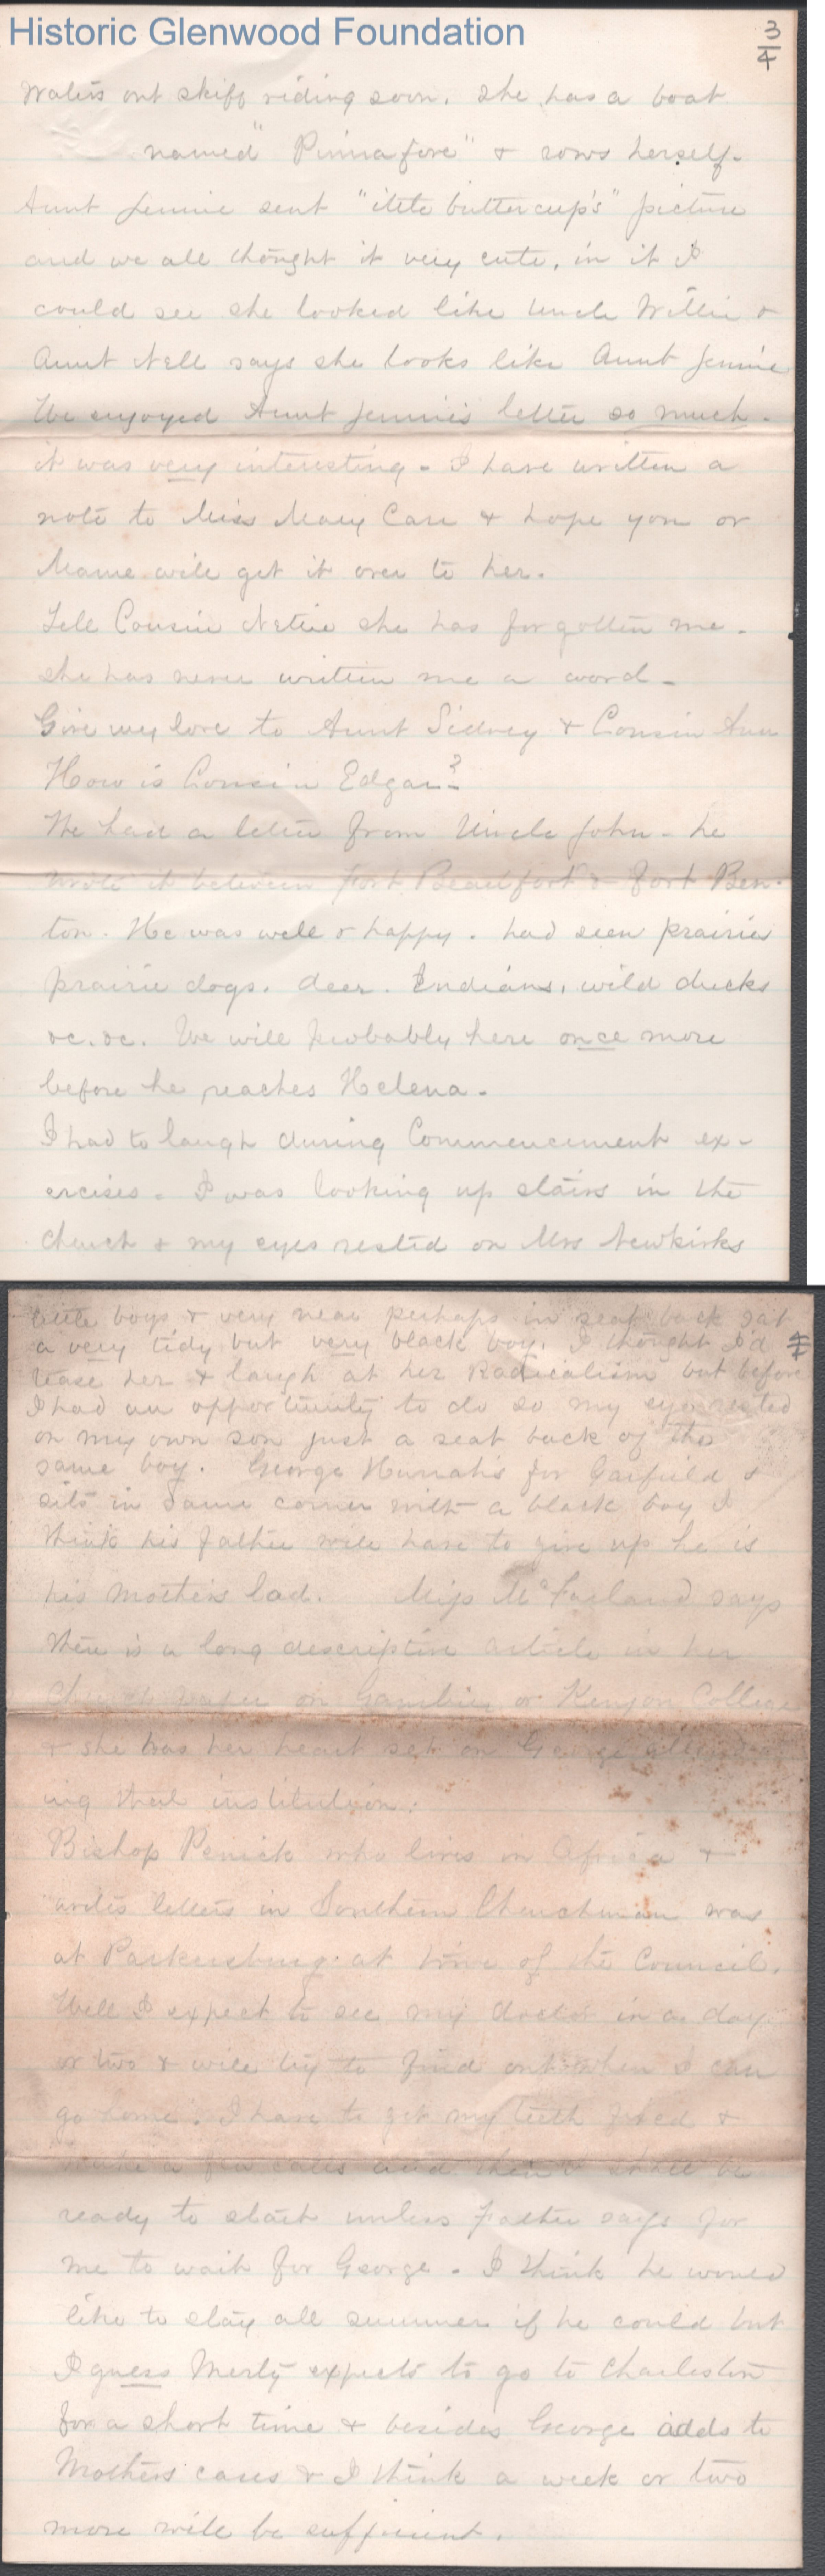 Historic Glenwood Foundation
3/4
Waters out skiff riding soon. She has a boat
named "Pinnafore" & rows herself.
Aunt Jennie sent "ittle buttercup's" picture
and we all thought it very cute, in it I
could see she looked like Uncle Willie &
Aunt Nell says she looks like Aunt Jennie
We enjoyed Aunt Jennie's letter so much.
it was very interesting. I have written a
note to Miss Mary Carr & hope you or
Mame will get it over to her.
Tell Cousin Netie she has forgotten me.
she has never written me a word.
Give my love to Aunt Sidney & Cousin Ann
How is Cousin Edgar?
We had a letter from Uncle John - he
wrote it between Fort Beaufort & Fort Ben-
ton. He was well & happy. had seen prairies
prairie dogs. deer. Indians, wild ducks
&c. &c. We will probably here once more
before he reaches Helena.
I had to laugh during Commencement ex-
ercises. I was looking up stairs in the
church & my eyes rested on Mrs Newkirks
little boys & very near perhaps in seat back sat
4
a very tidy but very black boy. I thought I'd
tease her & laugh at her Radicalism but before
I had an opportunity to do so my eyes rested
on my own son just a seat back of the
same boy. George Hurrahs for Garfield &
sits in same corner with a black boy I
think his father will have to give up he is
his mothers lad. Miss McFarland says
there is a long descriptive article in her
Church paper on Gambier or Kenyon College
& she has her heart set on George attend-
ing that institution.
Bishop Penick who lives in Africa &
writes letters in Southern Churchman was
at Parkersburg at time of the Council.
Well I expect to see my doctor in a day
or two & will try to find out when I can
go home. I have to get my teeth fixed &
make a few calls and then I shall be
ready to start unless Father says for
me to wait for George. I think he would
like to stay all summer if he could but
I guess Merty expects to go to Charleston
for a short time & besides George adds to
Mothers cares & I think a week or two
more will be sufficient.